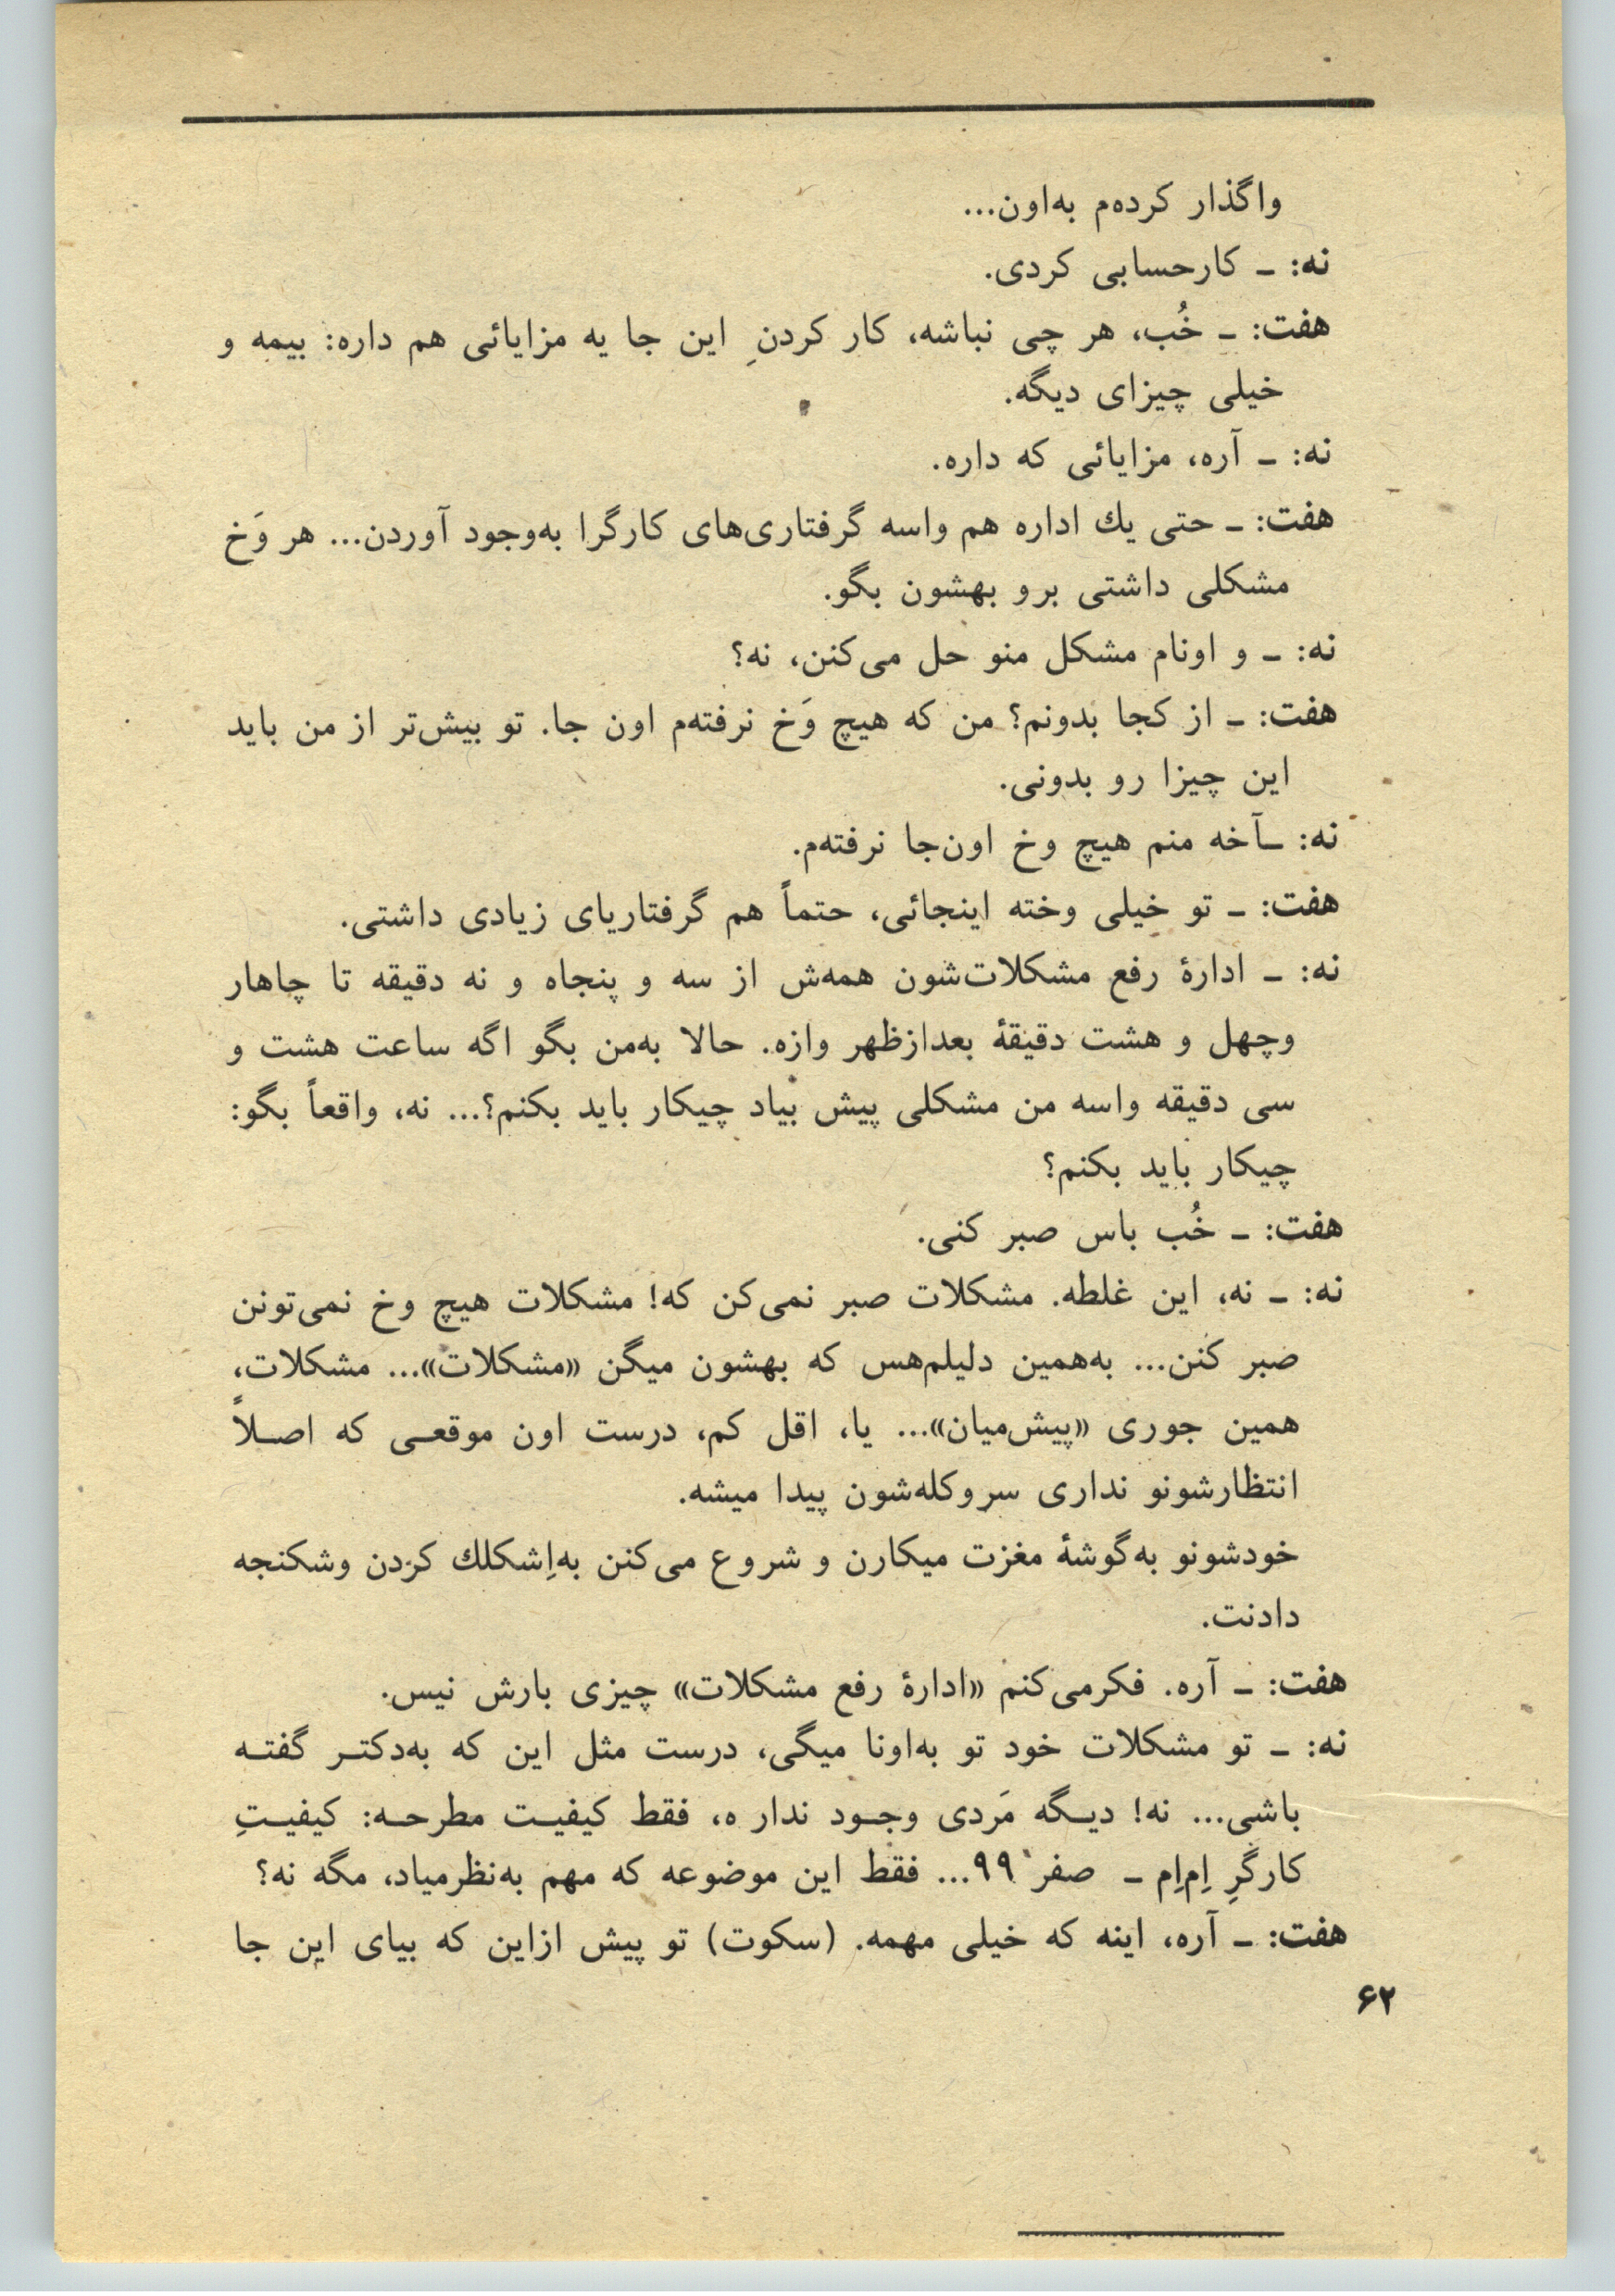 واگذار کرده‌م به‌اون...
نه: ـ کارحسابی کردی.
هفت: ـ خُب، هر چی نباشه، کار کردنِ این جا یه مزایائی هم داره: بیمه و
خیلی چیزای دیگه.
نه: ـ آره، مزایائی که داره.
هفت: ـ حتی یك اداره هم واسه گرفتاری‌های کارگرا به‌وجود آوردن... هر وَخ
مشکلی داشتی برو بهشون بگو.
نه: ـ و اونام مشکل منو حل می‌کنن، نه؟
هفت: ـ از کجا بدونم؟ من که هیچ وَخ نرفته‌م اون جا. تو بیش‌تر از من باید
این چیزا رو بدونی.
نه: ـآخه منم هیچ وخ اون‌جا نرفته‌م.
هفت: ـ تو خیلی وخته اینجائی، حتماً هم گرفتاریای زیادی داشتی.
نه: ـ ادارهٔ رفع مشکلات‌شون همه‌ش از سه و پنجاه و نه دقیقه تا چاهار
وچهل و هشت دقیقهٔ بعدازظهر وازه. حالا به‌من بگو اگه ساعت هشت و
سی دقیقه واسه من مشکلی پیش بیاد چیکار باید بکنم؟... نه، واقعاً بگو:
چیکار باید بکنم؟
هفت: ـ خُب باس صبر کنی.
نه: ـ نه، این غلطه. مشکلات صبر نمی‌کن که! مشکلات هیچ وخ نمی‌تونن
صبر کنن... به‌همین دلیلم‌هس که بهشون میگن «مشکلات»... مشکلات،
همین جوری «پیش‌میان»... یا، اقل کم، درست اون موقعی که اصلاً
انتظارشونو نداری سروکله‌شون پیدا میشه.
خودشونو به‌گوشهٔ مغزت میکارن و شروع می‌کنن به‌اِشکلك کردن وشکنجه
دادنت.
هفت: ـ آره. فکرمی‌کنم «ادارهٔ رفع مشکلات» چیزی بارش نیس.
نه: ـ تو مشکلات خود تو به‌اونا میگی، درست مثل این که به‌دکتر گفته
باشی... نه! دیگه مَردی وجود ندار ه، فقط کیفیت مطرحه: کیفیتِ
کارگرِ اِم‌اِم ـ صفر ۹۹... فقط این موضوعه که مهم به‌نظرمیاد، مگه نه؟
هفت: ـ آره، اینه که خیلی مهمه. (سکوت) تو پیش ازاین که بیای این جا
۶۲